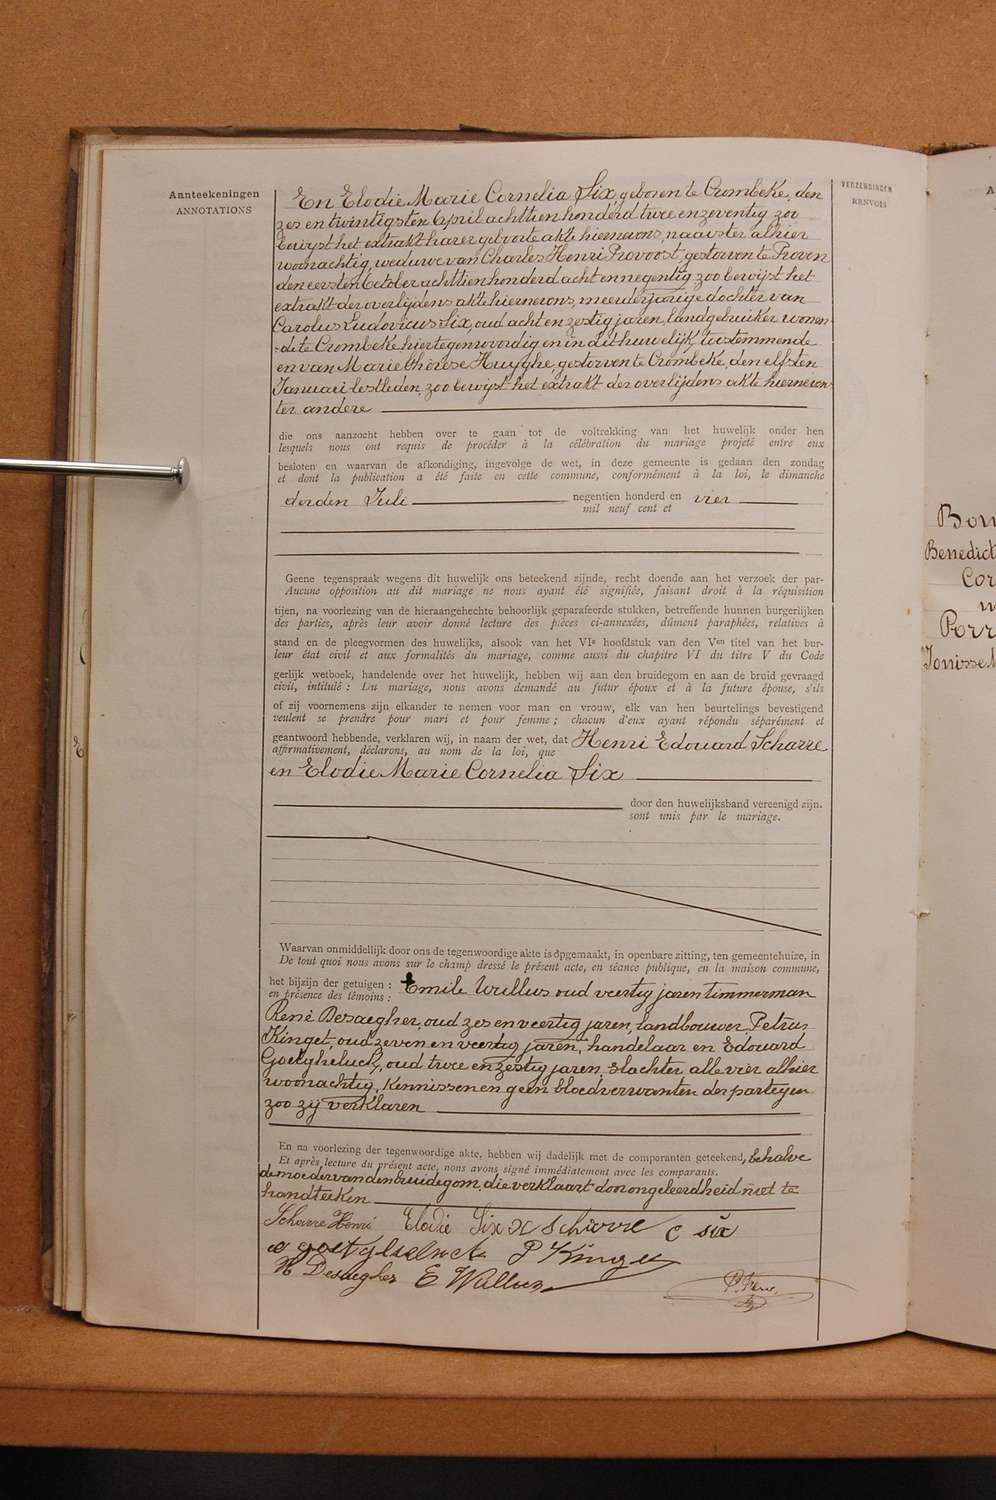 Aanteekeningen
ANNOTATIONS
VERZENDINGEN
RENVOIS
En Elodie Marie Cornelia Six, geboren te Crombeke, den
zes en twintigsten April achttien honderd twee en zeventig zoo
bewijst het extrakt harer geboorte akte hiernevens, naaister alhier
woonachtig, weduwe van Charles Henri Provoost, gestorven te Proven
den eersten October achttien honderd acht en negentig zoo bewijst het
extrakt der overlijdens akte hiernevens, meerderjarige dochter van
Carolus Ludovicus Six, oud acht en zestig jaren, landgebruiker wonen-
-de te Crombeke hiertegenwoordig en in dit huwelijk toestemmende
en van Marie Thérèse Huyghe, gestorven te Crombeke, den elfsten
Januari lestleden, zoo bewijst het extrakt der overlijdens akte hierneven
ter andere
die ons aanzocht hebben over te gaan tot de voltrekking van het huwelijk onder hen
lesquels nous ont requis de procéder à la célébration du mariage projeté entre eux
besloten en waarvan de afkondiging, ingevolge de wet, in deze gemeente is gedaan den zondag
et dont la publication a été faite en cette commune, conformément à la loi, le dimanche
derden Jule negentien honderd en vier
mil neuf cent et
Geene tegenspraak wegens dit huwelijk ons beteekend zijnde, recht doende aan het verzoek der par-
Aucune opposition au dit mariage ne nous ayant été signifiée, faisant droit à la réquisition
tijen, na voorlezing van de hieraangehechte behoorlijk geparafeerde stukken, betreffende hunnen burgerlijken
des parties, après leur avoir donné lecture des pièces ci-annexées, dûment paraphées, relatives à
stand en de pleegvormen des huwelijks, alsook van het VIe hoofdstuk van den Ven titel van het bur-
leur état civil et aux formalités du mariage, comme aussi du chapitre VI du titre V du Code
gerlijk wetboek, handelende over het huwelijk, hebben wij aan den bruidegom en aan de bruid gevraagd
civil, intitulé : Du mariage, nous avons demandé au futur époux et à la future épouse, s'ils
of zij voornemens zijn elkander te nemen voor man en vrouw, elk van hen beurtelings bevestigend
veulent se prendre pour mari et pour femme ; chacun d'eux ayant répondu séparément et
geantwoord hebbende, verklaren wij, in naam der wet, dat Henri Edouard Scharre
affirmativement, déclarons, au nom de la loi, que
en Elodie Marie Cornelia Six
door den huwelijksband vereenigd zijn.
sont unis par le mariage.
Waarvan onmiddelijk door ons de tegenwoordige akte is opgemaakt, in openbare zitting, ten gemeentehuize, in
De tout quoi nous avons sur le champ dressé le présent acte, en séance publique, en la maison commune,
het bijzijn der getuigen : Emile Wullus oud veertig jaren timmerman
en présence des témoins :
René Desaegher, oud zes en veertig jaren, landbouwer, Petrus
Kinget, oud zeven en veertig jaren, handelaar en Edouard
Goetgheluck, oud twee en zestig jaren, slachter alle vier alhier
woonachtig, kennissen en geen bloedverwanten der partijen
zoo zij verklaren
En na voorlezing der tegenwoordige akte, hebben wij dadelijk met de comparanten geteekend, behalve
Et après lecture du présent acte, nous avons signé immédiatement avec les comparants.
de moeder van den bruidegom, die verklaart door ongeleerdheid niet te
handteeken
Scharre Henri Elodie Six H Schiorre C Six
e goetghelucke P Kinget
R Desaegher E Wullus
Bou
Benedict
Cor
Porr